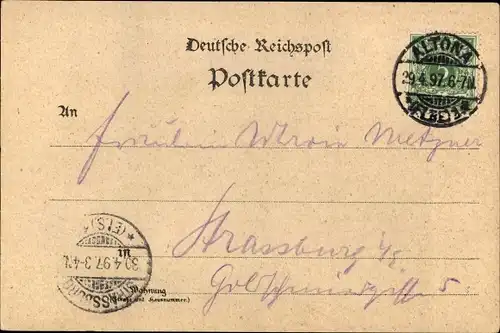 Deutsche Reichspost
Postkarte
ALTONA
29.4.97.6-7N.
An
Fräulein Metzner
in
Strassburg i/E
5.
Wohnung
(Straße und Hausnummer)
STRASSBURG
30.4.97.3-4N
(ELS.)